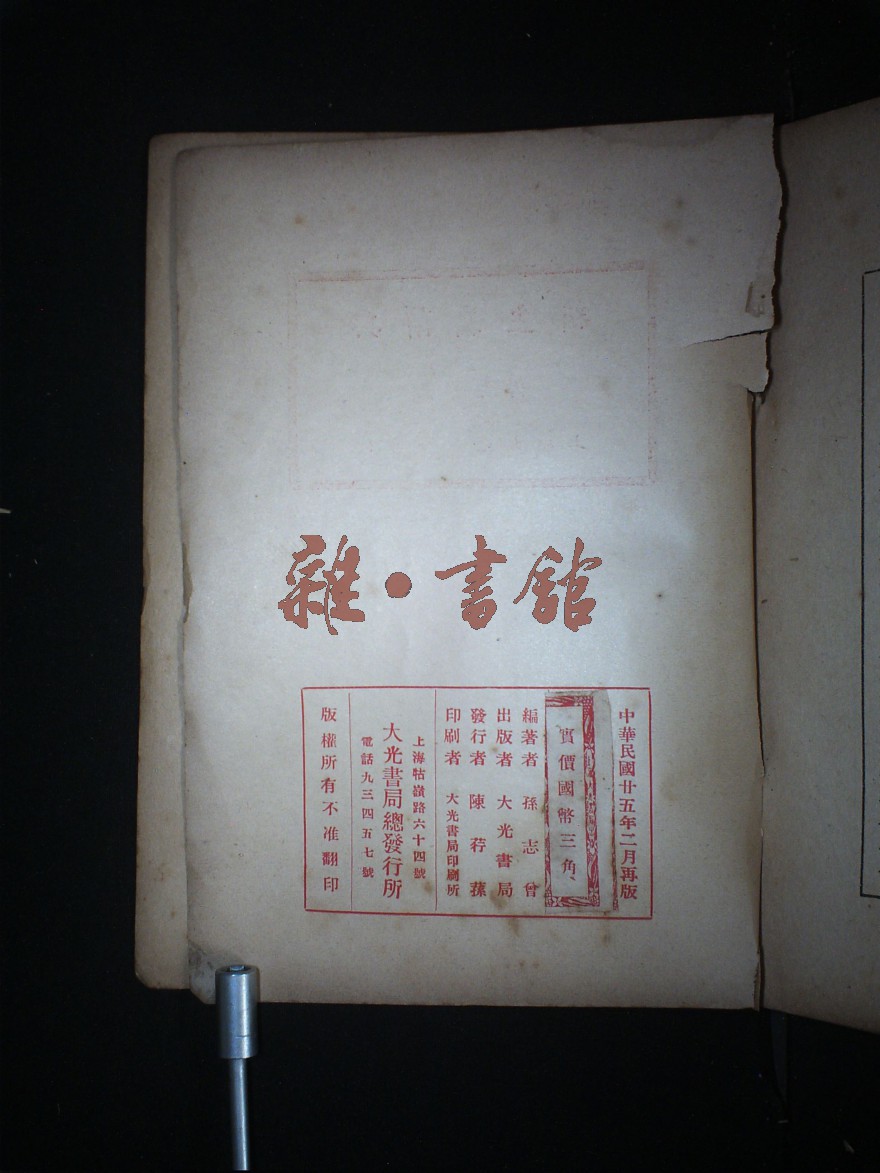 雜·書舘
中華民國廿五年二月再版
實價國幣三角
編著者 孫志曾
出版者 大光書局
發行者 陳荇蓀
印刷者 大光書局印刷所
上海牯嶺路六十四號
大光書局總發行所
電話九三四五七號
版權所有不准翻印